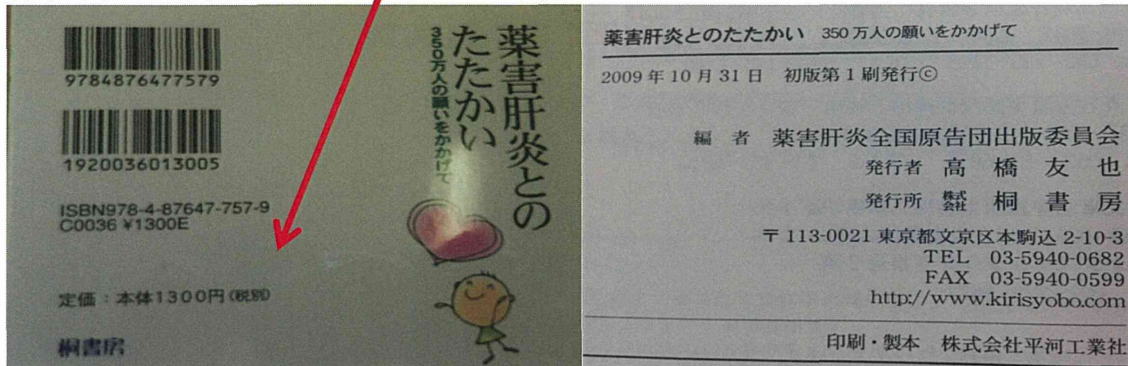 9784876477579
1920036013005
ISBN978-4-87647-757-9
C0036 ¥1300E
定価：本体1300円(税別)
桐書房
薬害肝炎との
たたかい
350万人の願いをかかげて
薬害肝炎とのたたかい 350万人の願いをかかげて
2009年10月31日 初版第1刷発行©
編 者 薬害肝炎全国原告団出版委員会
発行者 高橋友也
発行所 株式会社 桐書房
〒113-0021 東京都文京区本駒込 2-10-3
TEL 03-5940-0682
FAX 03-5940-0599
http://www.kirisyobo.com
印刷・製本 株式会社平河工業社